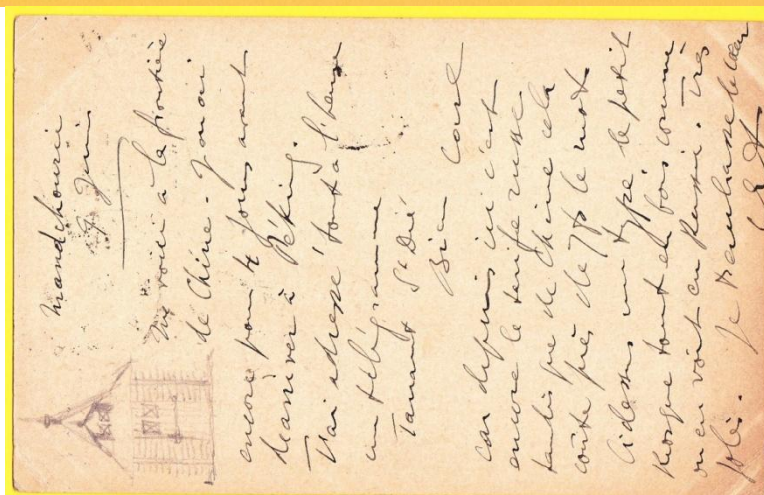 Mandchourie
9 Juin
Me voici à la frontière
de Chine. J'en ai
encore pour 4 jours avant
d'arriver à Péking.
J'ai adressé tout à l'heure
un télégramme
Tanant St Dié
Bien cord
car depuis ici c'est
encore le tarif russe
tandis que de Chine cela
coûte près de 7f le mot
Cidessus un type de petit
Kiosque tout en bois comme
on en voit en Russie. Très
jolis. Je